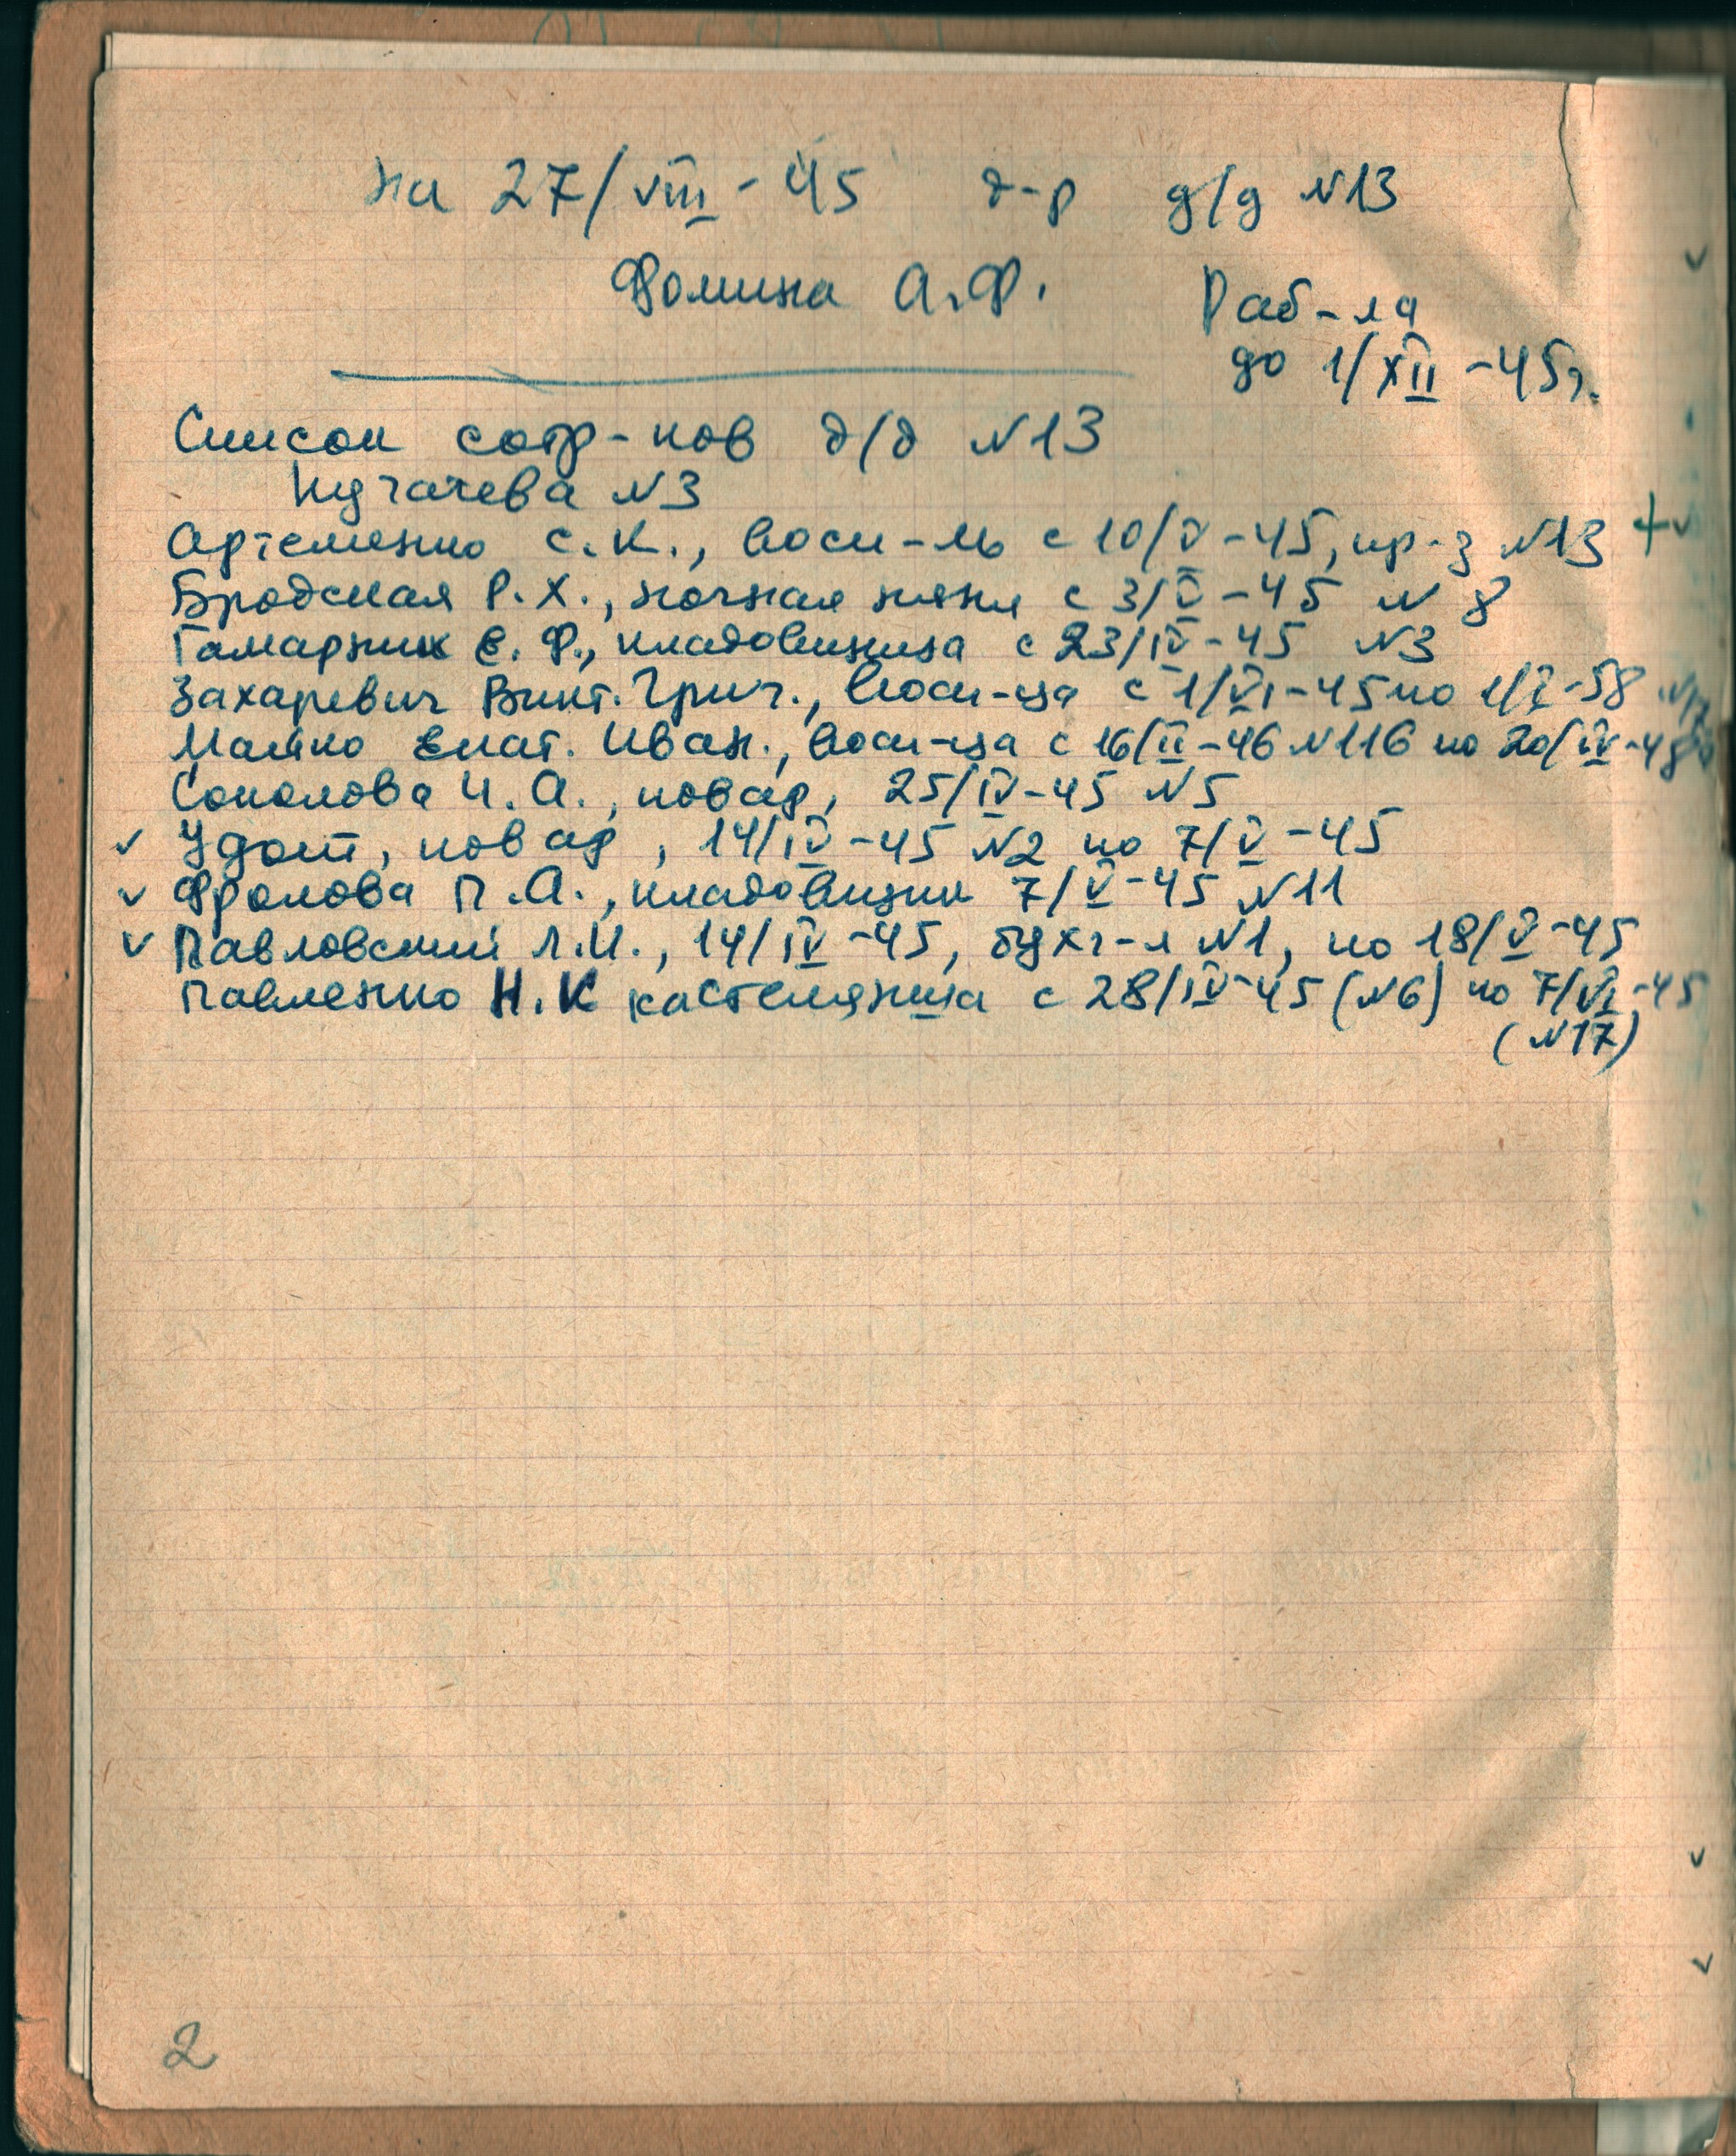 на 27/VIII-45 д-р д/д N13
Фомина А.Ф. Раб-ла
до 1/XII-45г.
Список сотр-ков д/д N13
Кугачева N3
Артеменко С.К., восп-ль с 10/V-45, пр-з N13 +
Бродская Р.Х., ночная няня с 3/V-45 N 8
Гамарник Е.Ф., кладовщица с 23/IV-45 N3
Захаревич Викт. Григ., восп-ца с 1/VI-45 по 1/I-58
Матко Екат. Иван., восп-ца с 16/II-46 N116 по 20/IV-48
Соколова И.А., повар, 25/IV-45 N5
✓ Удот, повар, 14/IV-45 N2 по 7/V-45
✓ Фролова П.А., кладовщик 7/V-45 N11
✓ Павловский Л.И., 14/IV-45, бухг-л N1, по 18/V-45
Павленко Н.К кастелянша с 28/IV-45 (N6) по 7/VI-45
(N17)
2